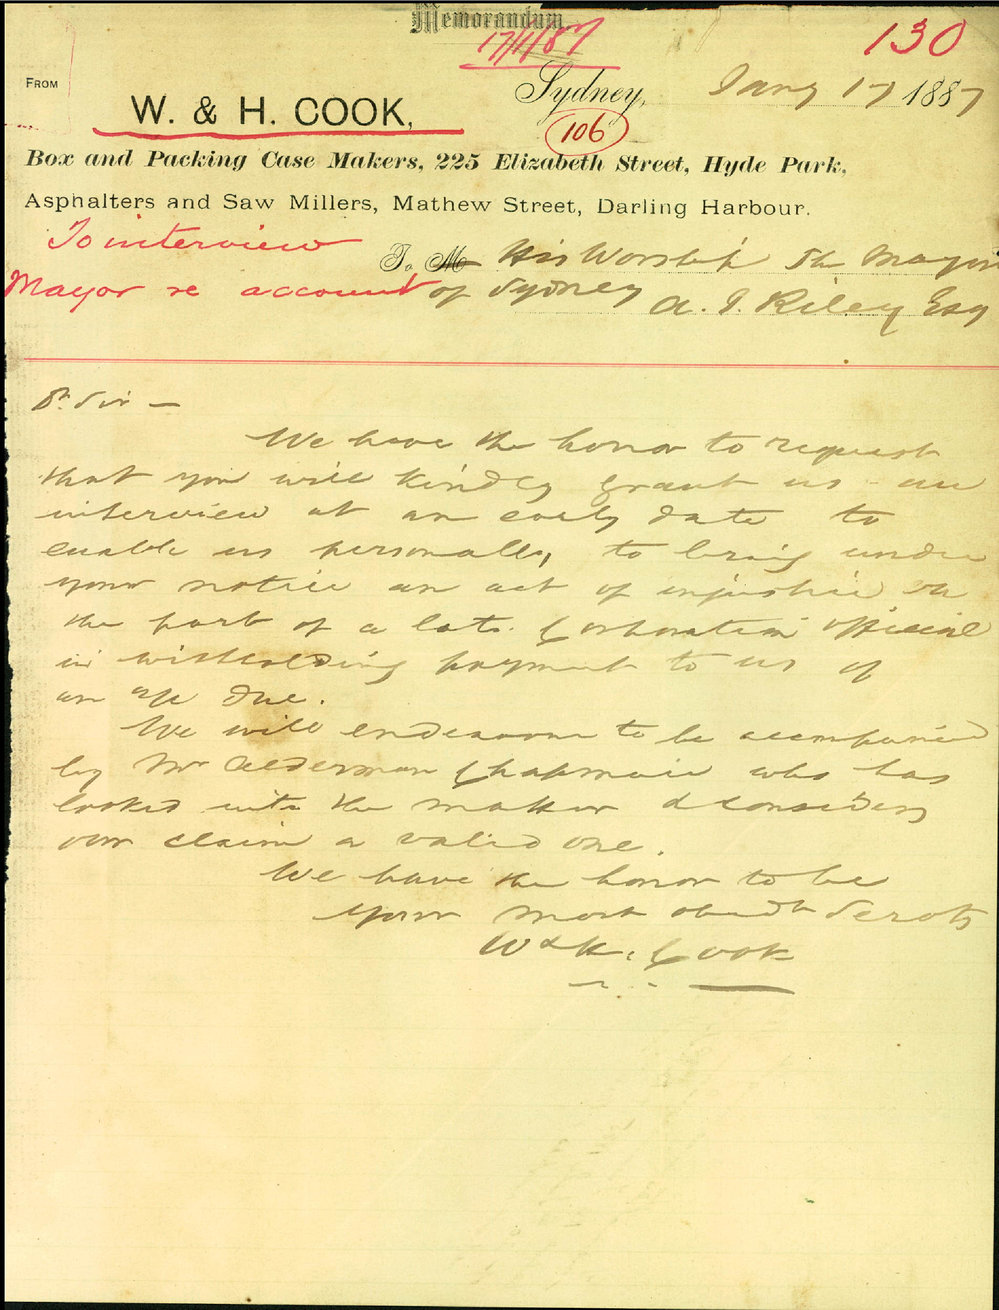 Memorandum
17/1/87
130
FROM
Sydney, Jany 17 1887
W. & H. COOK,
106
Box and Packing Case Makers, 225 Elizabeth Street, Hyde Park,
Asphalters and Saw Millers, Mathew Street, Darling Harbour.
To interview
Mayor re account
To M His Worship The Mayor
of Sydney A. J. Riley Esq
Dr Sir —
We have the honor to request
that you will kindly grant us an
interview at an early date to
enable us personally, to bring under
your notice an act of injustice on
the part of a late Corporation official
in withholding payment to us of
an a/c due.
We will endeavour to be accompanied
by Mr Alderman Chapman who has
looked into the matter & considers
our claim a valid one.
We have the honor to be
Your most obedt Servts
W & H. Cook